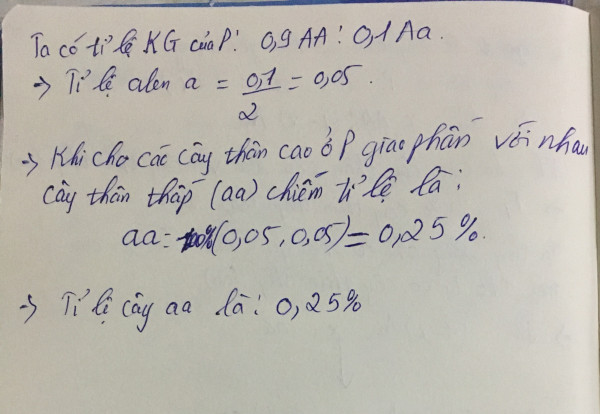 Ta có tỉ lệ KG của P: 0,9 AA : 0,1 Aa.
→ Tỉ lệ alen a = 0,1/2 = 0,05.
→ Khi cho các cây thân cao ở P giao phấn với nhau
cây thân thấp (aa) chiếm tỉ lệ là:
aa = (0,05.0,05) = 0,25%.
→ Tỉ lệ cây aa là: 0,25%